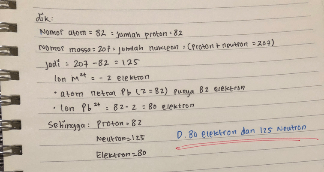 Dik:
Nomor atom = 82 = jumlah proton = 82
Nomor massa = 207 = jumlah nukleon = (proton + neutron = 207)
Jadi = 207 - 82 = 125
Ion M²⁺ = - 2 elektron
• atom netral Pb (Z = 82) punya 82 elektron
• Ion Pb²⁺ = 82 - 2 = 80 elektron
Sehingga: Proton = 82
Neutron = 125
Elektron = 80
D. 80 elektron dan 125 Neutron